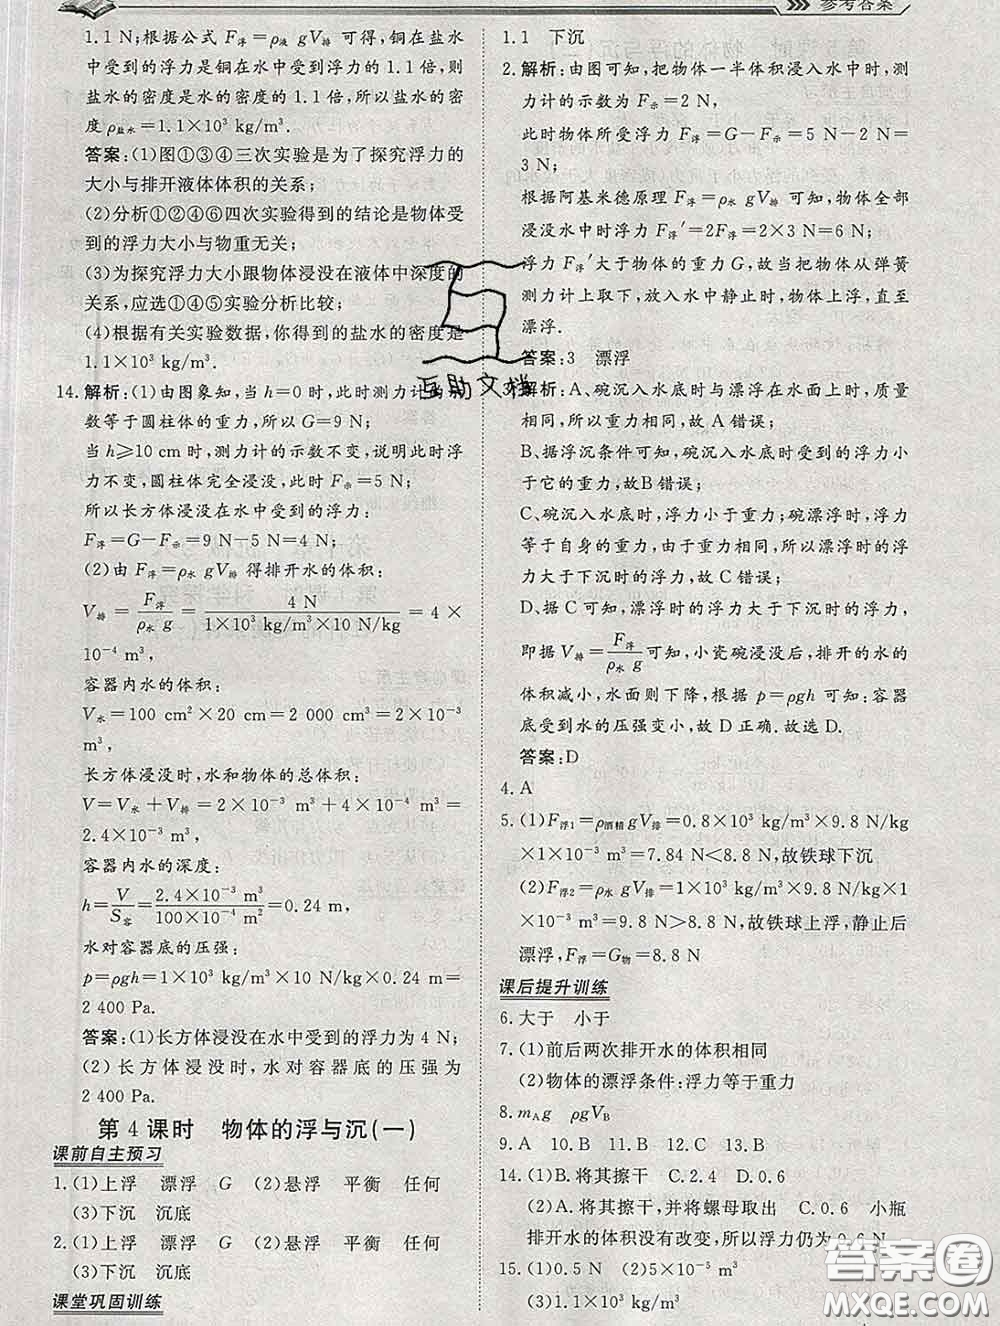 参考答案
1.1 N;根据公式 F浮=ρ液 gV排 可得,铜在盐水
中受到的浮力是铜在水中受到浮力的 1.1 倍,则
盐水的密度是水的密度的 1.1 倍,所以盐水的密
度 ρ盐水=1.1×10³ kg/m³.
答案:(1)图①③④三次实验是为了探究浮力的
大小与排开液体体积的关系;
(2)分析①②④⑥四次实验得到的结论是物体受
到的浮力大小与物重无关;
(3)为探究浮力大小跟物体浸没在液体中深度的
关系,应选①④⑤实验分析比较;
(4)根据有关实验数据,你得到的盐水的密度是
1.1×10³ kg/m³.
14.解析:(1)由图象知,当 h=0 时,此时测力计的示
数等于圆柱体的重力,所以 G=9 N;
当 h≥10 cm 时,测力计的示数不变,说明此时浮
力不变,圆柱体完全浸没,此时 F示=5 N;
所以长方体浸没在水中受到的浮力:
F浮=G-F示=9 N-5 N=4 N;
(2)由 F浮=ρ水 gV排 得排开水的体积:
V排=F浮/ρ水 g=4 N/1×10³ kg/m³×10 N/kg=4×
10⁻⁴ m³,
容器内水的体积:
V水=100 cm²×20 cm=2 000 cm³=2×10⁻³
m³,
长方体浸没时,水和物体的总体积:
V=V水+V排=2×10⁻³ m³+4×10⁻⁴ m³=
2.4×10⁻³ m³,
容器内水的深度:
h=V/S容=2.4×10⁻³ m³/100×10⁻⁴ m²=0.24 m,
水对容器底的压强:
p=ρgh=1×10³ kg/m³×10 N/kg×0.24 m=
2 400 Pa.
答案:(1)长方体浸没在水中受到的浮力为 4 N;
(2)长方体浸没时,水对容器底的压强为
2 400 Pa.
第 4 课时 物体的浮与沉(一)
课前自主预习
1.(1)上浮 漂浮 G (2)悬浮 平衡 任何
(3)下沉 沉底
2.(1)上浮 漂浮 G (2)悬浮 平衡 任何
(3)下沉 沉底
课堂巩固训练
1.1 下沉
2.解析:由图可知,把物体一半体积浸入水中时,测
力计的示数为 F示=2 N,
此时物体所受浮力 F浮=G-F示=5 N-2 N=
3 N;
根据阿基米德原理 F浮=ρ水 gV排 可知,物体全部
浸没水中时浮力 F浮′=2F浮=2×3 N=6 N;
浮力 F浮′大于物体的重力 G,故当把物体从弹簧
测力计上取下,放入水中静止时,物体上浮,直至
漂浮.
答案:3 漂浮
3.解析:A、碗沉入水底时与漂浮在水面上时,质量
相同,所以重力相同,故 A 错误;
B、据浮沉条件可知,碗沉入水底时受到的浮力小
于它的重力,故B 错误;
C、碗沉入水底时,浮力小于重力;碗漂浮时,浮力
等于自身的重力,由于重力相同,所以漂浮时浮力
大于下沉时的浮力,故 C 错误;
D、据 C 可知,漂浮时的浮力大于下沉时的浮力,
即据 V排=F浮/ρ水 g可知,小瓷碗浸没后,排开的水的
体积减小,水面则下降,根据 p=ρgh 可知:容器
底受到水的压强变小,故 D 正确.故选 D.
答案:D
4.A
5.(1)F浮1=ρ酒精 gV排=0.8×10³×9.8 N/kg
×1×10⁻³ m³=7.84 N<8.8 N,故铁球下沉
(2)F浮2=ρ水 gV排=1×10³×9.8 N/kg×1
×10⁻³ m³=9.8 N>8.8 N,故铁球上浮,静止后
漂浮,F浮=G物=8.8 N
课后提升训练
6.大于 小于
7.(1)前后两次排开水的体积相同
(2)物体的漂浮条件:浮力等于重力
8.mAg ρgVB
9.A 10.B 11.B 12.C 13.B
14.(1)B.将其擦干 C.2.4 D.0.6
(2)A.将其擦干,并将螺母取出 C.0.6 小瓶
排开水的体积没有改变,所以浮力仍为 0.6 N
15.(1)0.5 (2)5×10⁻⁵ m³
(3)1.1×10³
互助文档
答案圈
MXQE.COM